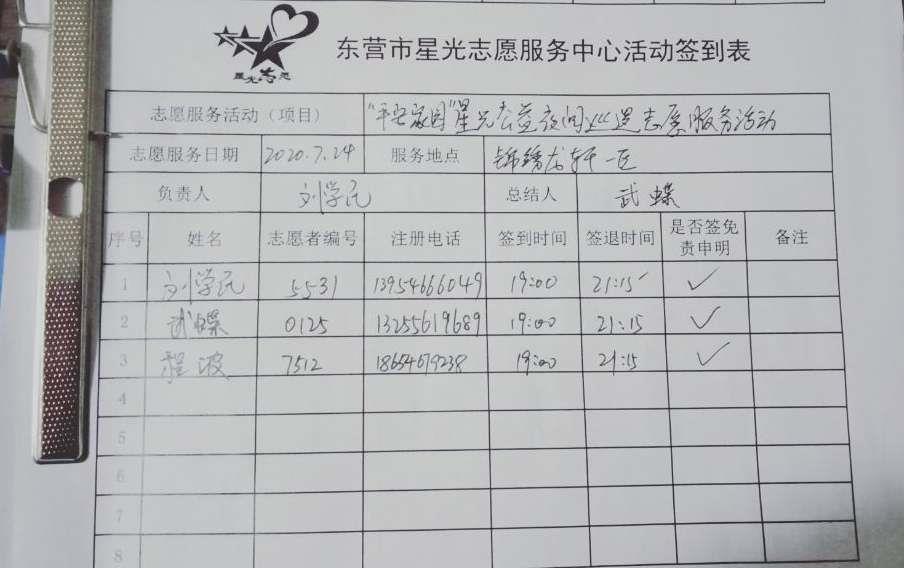 星光志愿
东营市星光志愿服务中心活动签到表
志愿服务活动（项目） “平安家园”星光公益夜间巡逻志愿服务活动
志愿服务日期 2020.7.24 服务地点 锦绣龙轩一区
负责人 刘学民 总结人 武蝶
序号 姓名 志愿者编号 注册电话 签到时间 签退时间 是否签免责申明 备注
1 刘学民 5531 13954666049 19:00 21:15 ✓
2 武蝶 0125 13255619689 19:00 21:15 ✓
3 程波 7512 18654679238 19:00 21:15 ✓
4
5
6
7
8